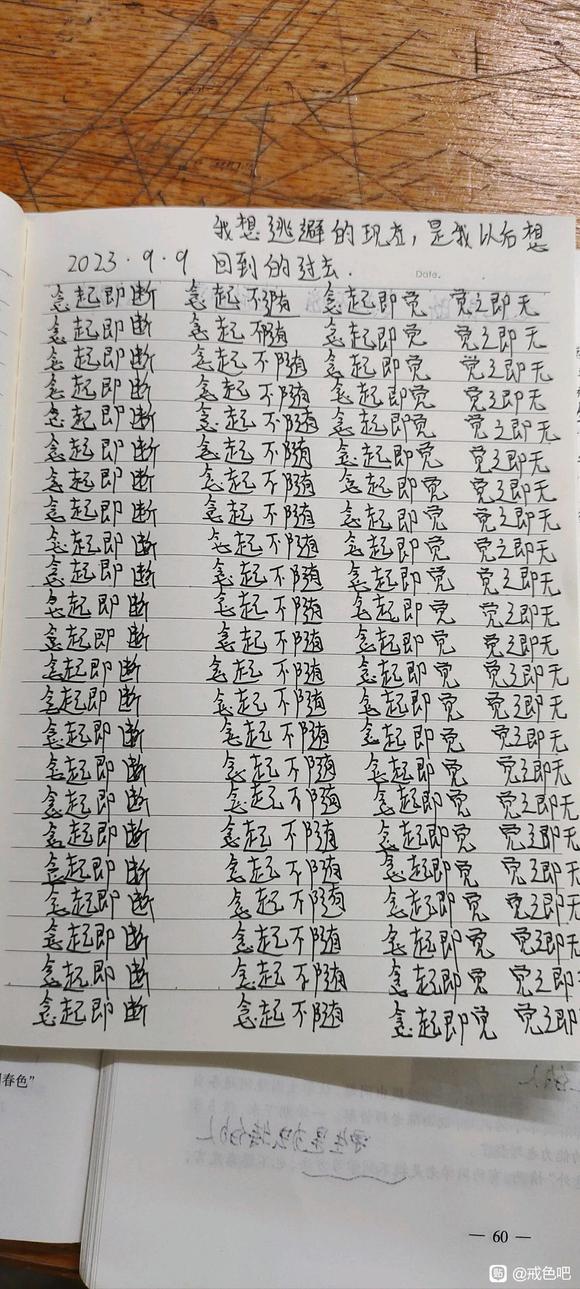 我想逃避的现在,是我以后想
2023.9.9 回到的过去.
Date.
念起即断 念起不随 念起即觉 觉之即无
念起即断 念起不随 念起即觉 觉之即无
念起即断 念起不随 念起即觉 觉之即无
念起即断 念起不随 念起即觉 觉之即无
念起即断 念起不随 念起即觉 觉之即无
念起即断 念起不随 念起即觉 觉之即无
念起即断 念起不随 念起即觉 觉之即无
念起即断 念起不随 念起即觉 觉之即无
念起即断 念起不随 念起即觉 觉之即无
念起即断 念起不随 念起即觉 觉之即无
念起即断 念起不随 念起即觉 觉之即无
念起即断 念起不随 念起即觉 觉之即无
念起即断 念起不随 念起即觉 觉之即无
念起即断 念起不随 念起即觉 觉之即无
念起即断 念起不随 念起即觉 觉之即无
念起即断 念起不随 念起即觉 觉之即无
念起即断 念起不随 念起即觉 觉之即无
念起即断 念起不随 念起即觉 觉之即无
念起即断 念起不随 念起即觉 觉之即无
念起即断 念起不随 念起即觉 觉之即无
念起即断 念起不随 念起即觉 觉之即无
念起即断 念起不随 念起即觉 觉之即无
念起即断 念起不随 念起即觉 觉之即
春色”
— 60 —
贴 @戒色吧